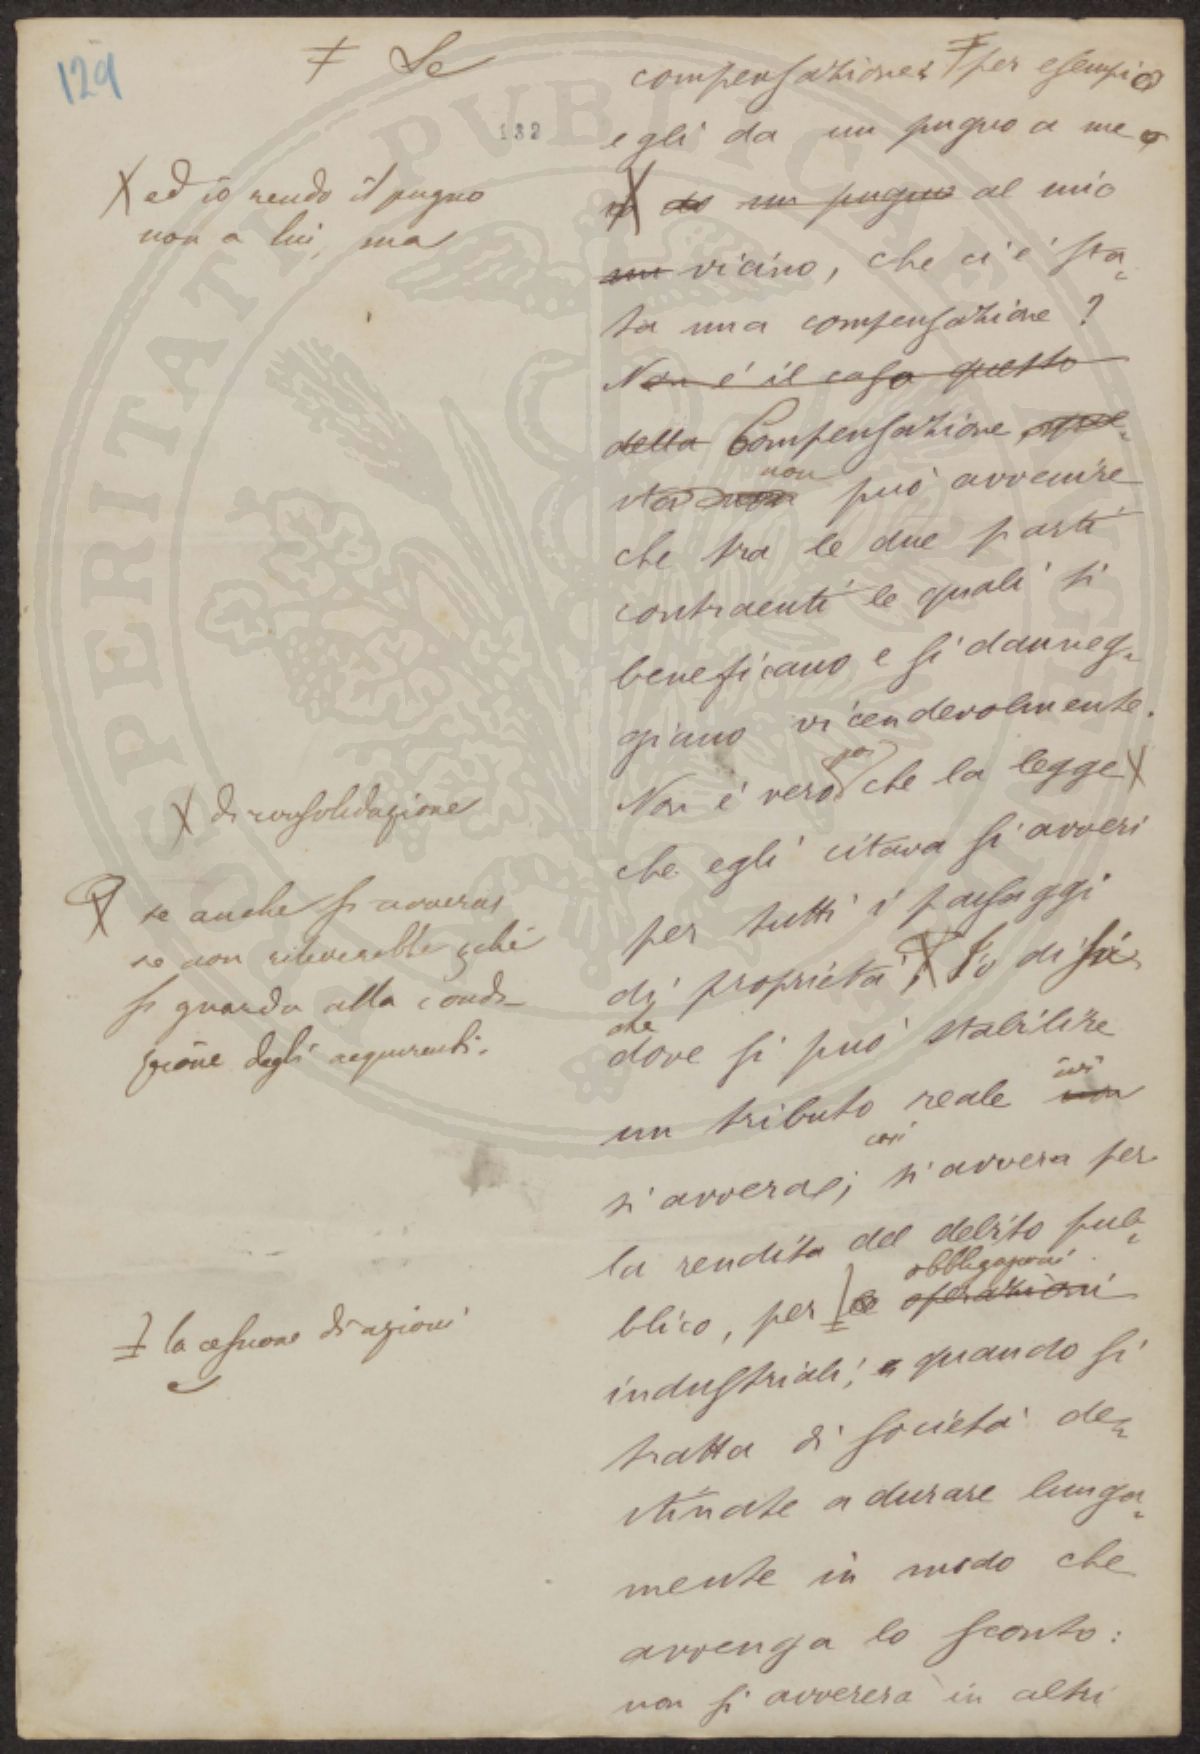 129
≠ Se
132
X ed io rendo il pugno
non a lui, ma
X di consolidazione
X se anche si avveras
se non rileverebbe, chi
si guarda alla condi-
zione degli acquirenti.
≠ la cessione di azioni
compensazione ≠ per esempio
egli da un pugno a me
X do un pugno al mio
un vicino, che ci è sta-
ta una compensazione?
Non è il caso questo
della Compensazione que-
sta non
non può avvenire
che tra le due parti
contraenti le quali si
beneficano e si danneg-
giano vicendevolmente.
Non è vero poi che la legge X
che egli citava si avveri
per tutti i passaggi
di proprietà; X Io dissi
che
dove si può stabilire
un tributo reale non
ivi
si avvera; così si avvera per
la rendita del debito pub-
blico, per ≠ le operazioni
obbligazioni
industriali; quando si
tratta di società de-
stinate a durare lunga-
mente in modo che
avvenga lo sconto:
non si avvererà in altri